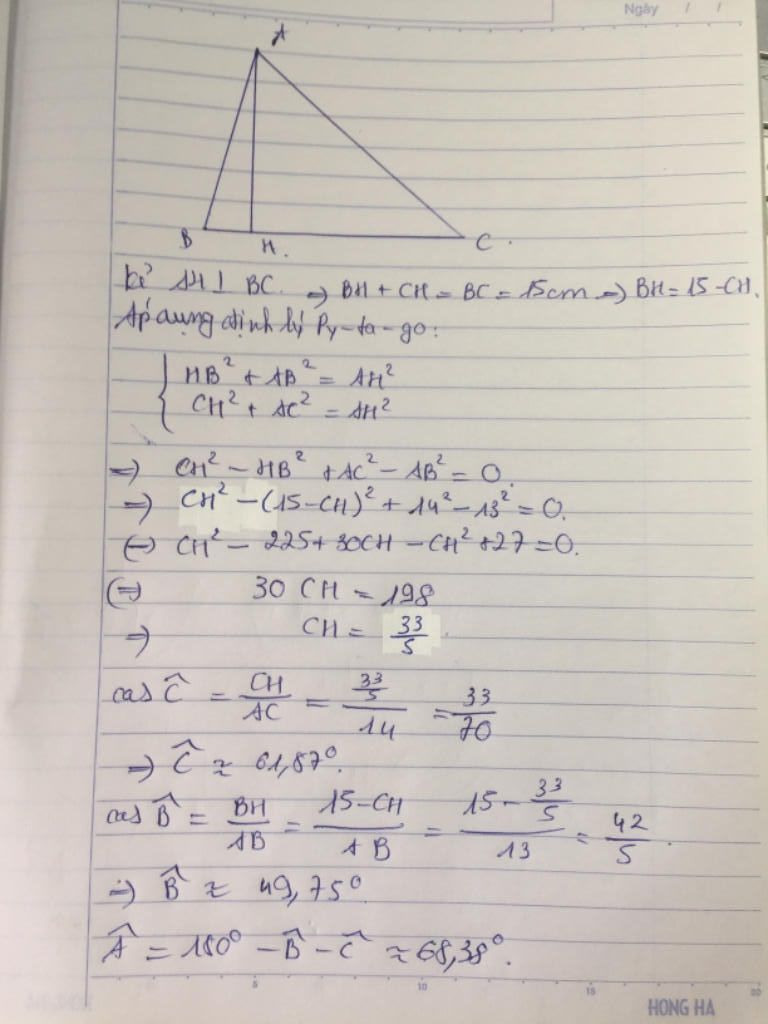 Ngày / /
A
B H. C.
kẻ AH⊥ BC. ⇒ BH + CH = BC = 15cm ⇒ BH = 15 - CH.
Áp dụng định lý Py-ta-go:
{ HB² + AB² = AH²
CH² + AC² = AH²
⇒ CH² - HB² + AC² - AB² = 0.
⇒ CH² - (15-CH)² + 14² - 13² = 0.
⇔ CH² - 225 + 30CH - CH² + 27 = 0.
⇔ 30 CH = 198
⇒ CH = 33/5.
cos Ĉ = CH/AC = (33/5)/14 = 33/70
⇒ Ĉ ≈ 61,87°.
cos B̂ = BH/AB = (15-CH)/AB = (15 - 33/5)/13 = 42/5.
⇒ B̂ ≈ 49,75°
Â = 180° - B̂ - Ĉ ≈ 68,38°.
5 10 15 20
HONG HA